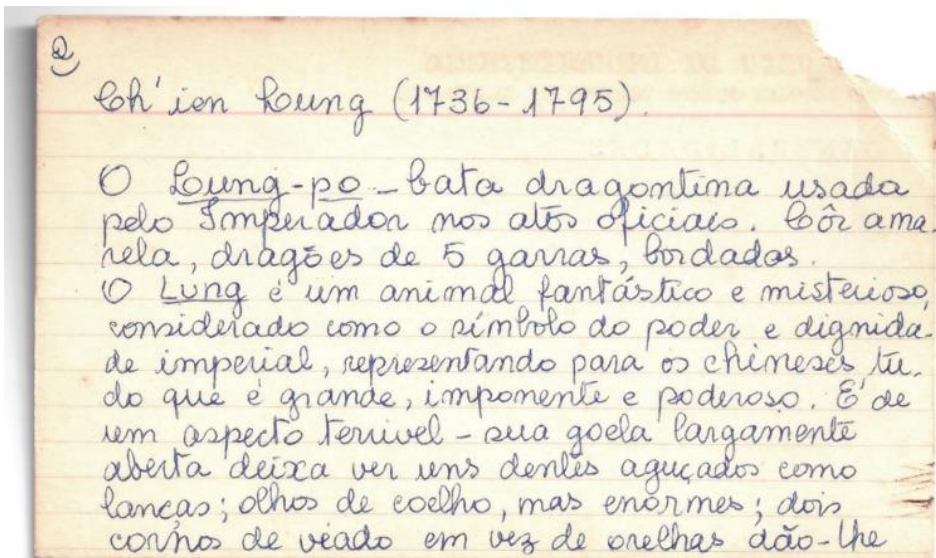 2)
Ch'ien Lung (1736-1795).
O Lung-po - bata dragontina usada
pelo Imperador nos atos oficiais. Côr ama-
rela, dragões de 5 garras, bordados.
O Lung é um animal fantástico e misterioso,
considerado como o símbolo do poder e dignida-
de imperial, representando para os chineses tu-
do que é grande, imponente e poderoso. É de
um aspecto terrivel - sua goela largamente
aberta deixa ver uns dentes aguçados como
lanças; olhos de coelho, mas enormes; dois
cornos de veado em vez de orelhas dão-lhe